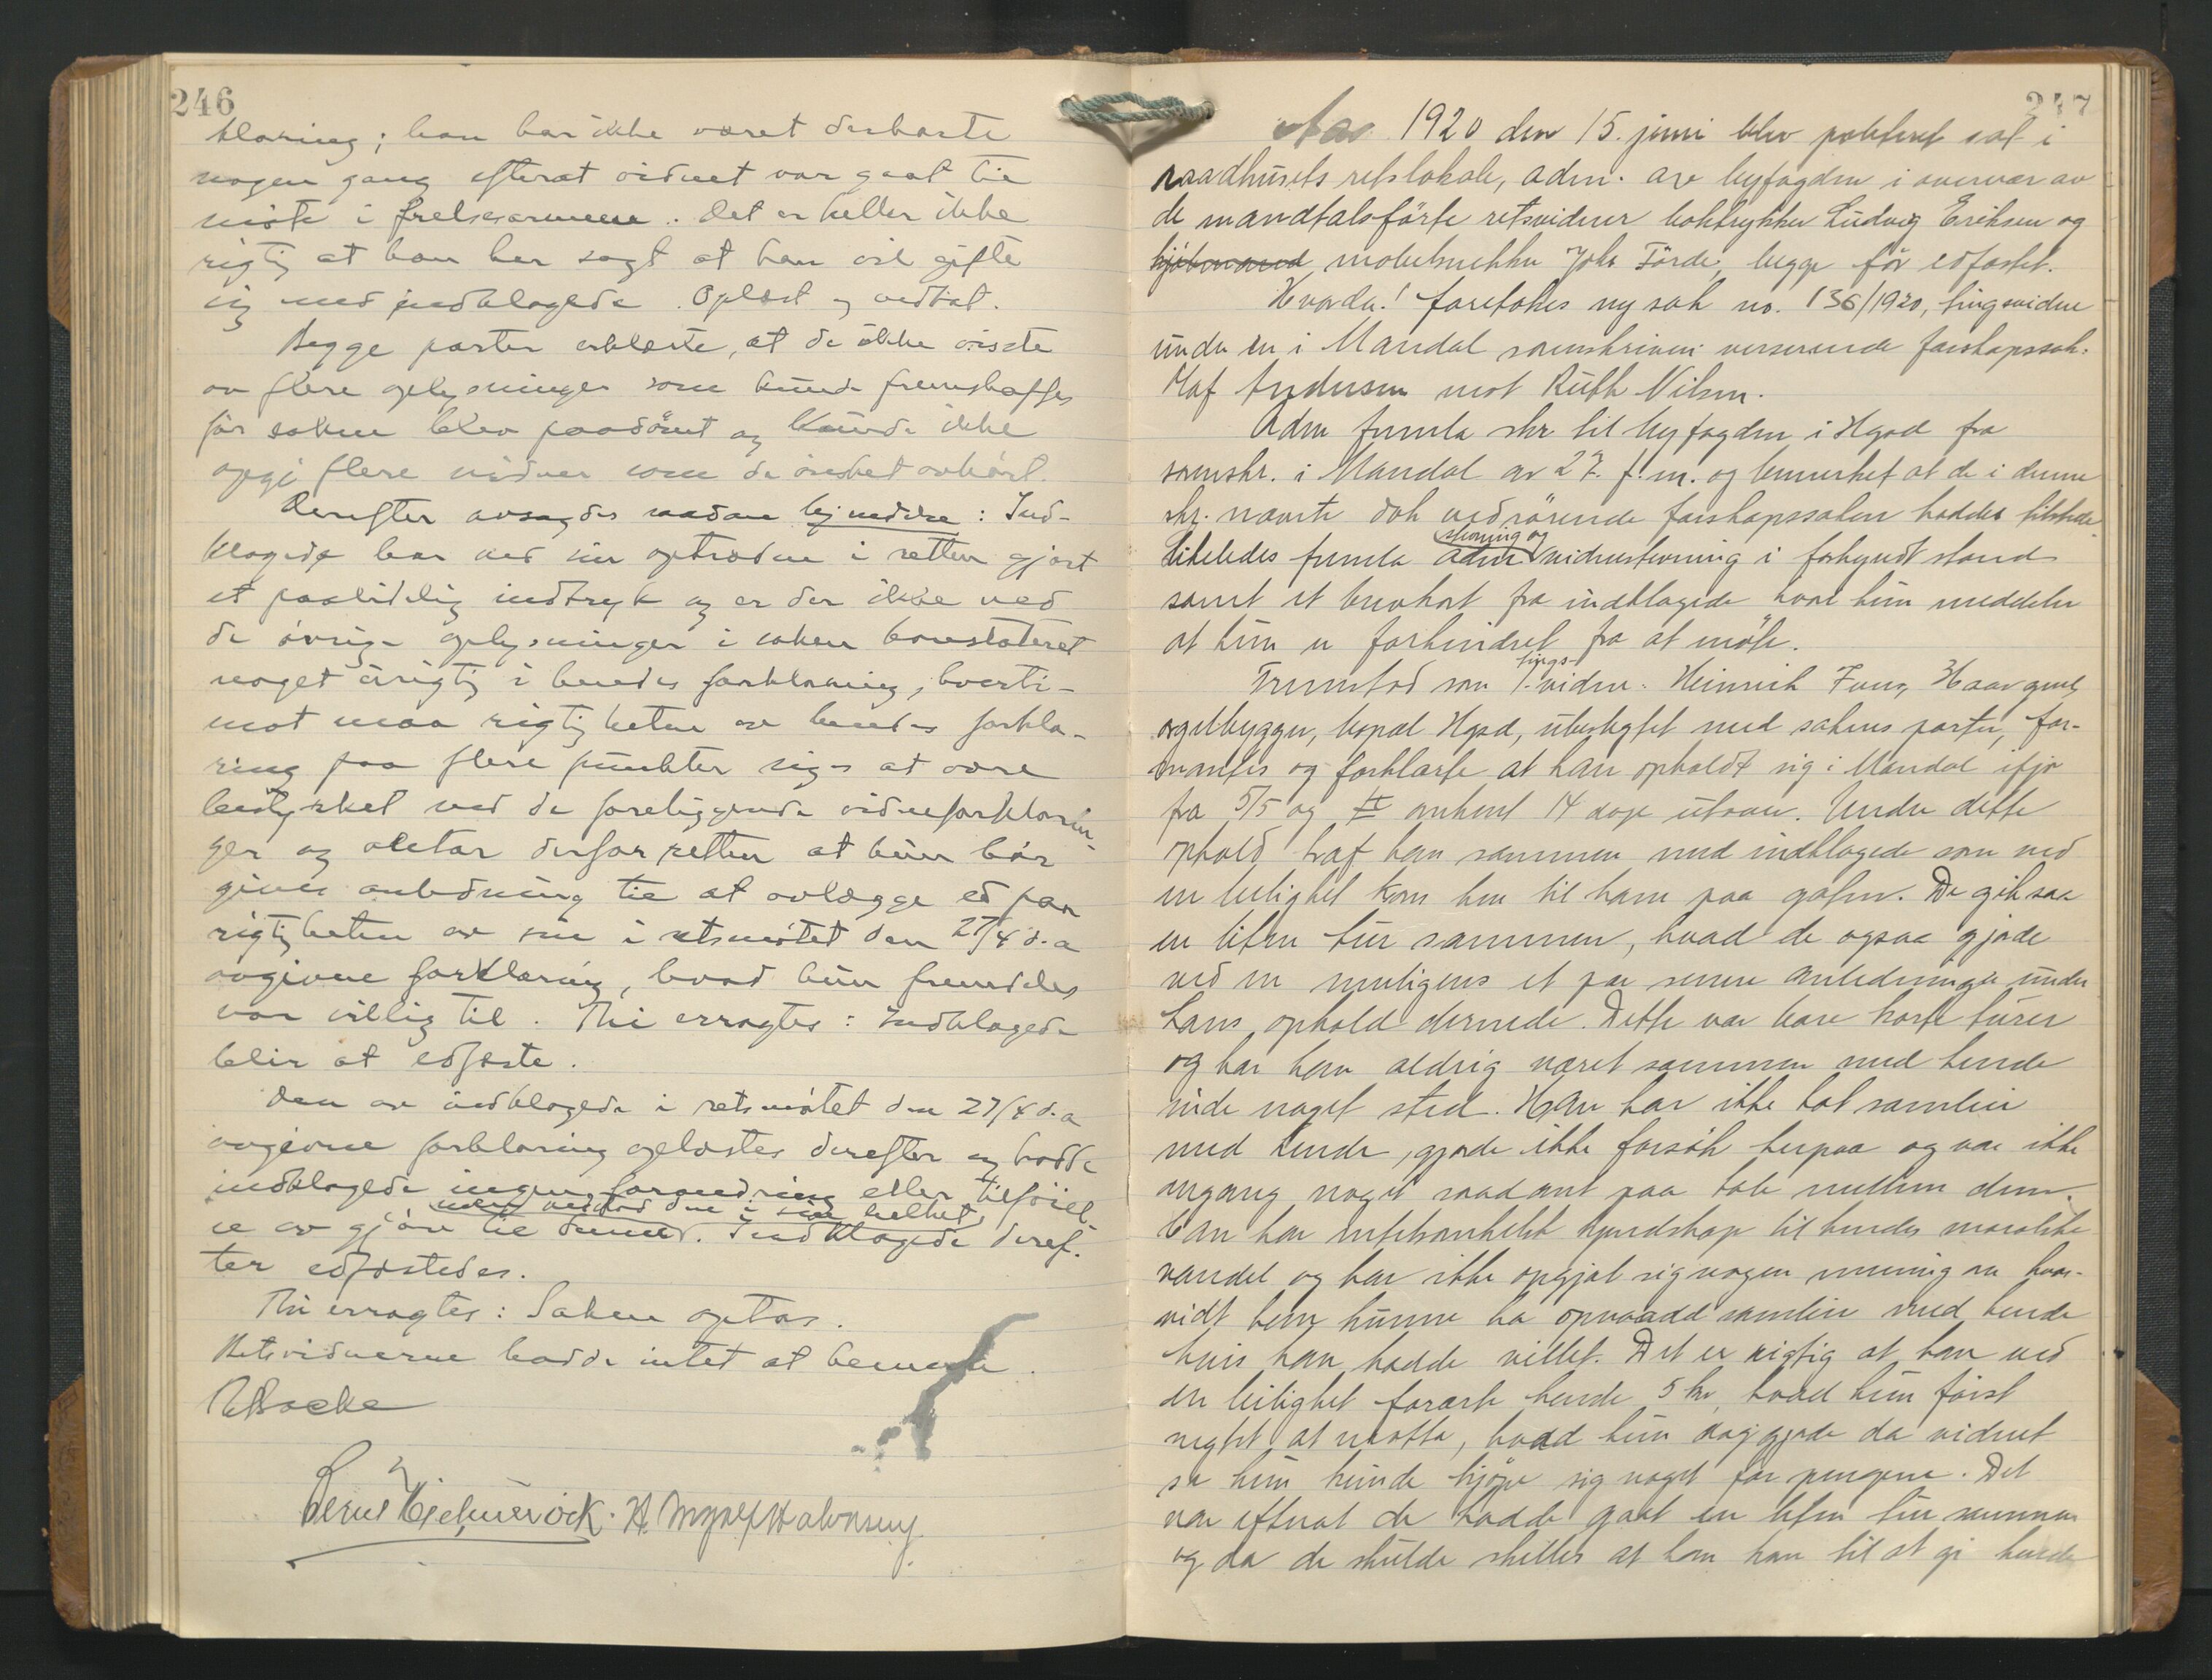 246
klaring; han har ikke været derborte
nogen gang efterat vidnet var gaat til
møte i frelsesarmeen. Det er heller ikke
rigtig at han har sagt at han vil gifte
sig med indklagede. Oplæst og vedtat.
Begge parter erklærte, at de ikke visste
av flere oplysninger som kunde fremskaffes
før saken blev paadømt og kunde ikke
opgi flere vidner som de ønsket avhørt.
Derefter avsagdes saadan kjendelse: Ind-
klagede har ved sin optræden i retten gjort
et paalidelig indtryk og er der ikke ved
de øvrige oplysninger i saken konstateret
noget urigtig i hendes forklaring, hverti-
mot maa rigtigheten av hendes forkla-
ring paa flere punkter siges at være
bestyrket ved de foreliggende vidneforklarin-
ger og agtar derfor retten at hun bør
gives anledning til at avlægge ed paa
rigtigheten av sin i retsmøtet den 27/4 d.a
avgivne forklaring, hvad hun fremdeles
var villig til. Thi erragtes: Indklagede
blir at edfæste.
Den av indklagede i retsmøtet den 27/4 d.a
avgivne forklaring oplæstes derefter og hadde
indklagede ingen forandring eller tilføiel-
men vedtod den i sin helhet
se av gjøre til denne. Indklagede deref-
ter edfæstedes.
Thi erragtes: Saken optas.
Retsvidnerne hadde intet at bemerke.
247
Aar 1920 den 15. juni blev politiret sat i
raadhusets retslokale, adm. av byfogden i overvær av
de mandtalsførte retsvidner boktrykker Ludvig Eriksen og
kjøbmand møbelsnekker Johs Førde, begge før edfæstet.
Hvorda! foretokes ny sak no. 136/1920, tingsvidne
under en i Mandal sorenskriveri verserende farskapssak:
Olaf Andersen mot Ruth Nilsen.
Adm fremla skr til byfogden i Hgsd fra
sorenskr. i Mandal av 27. f.m. og bemerket at de i denne
skr. nævnte dok vedrørende farskapssaken haddes tilstede.
stevning og
Likeledes fremla adm. vidnestevning i forkyndt stand
samt et brevkort fra indklagede hvori hun meddeler
at hun er forhindret fra at møte.
tings-
Fremstod som 1. vidne: Heinrich
orgelbygger, bopæl Hgsd, ubeslegtet med sakens parter, for-
manedes og forklarte at han opholdt sig i Mandal ifjor
fra 5/5 og omkrent 14 dage utover. Under dette
ophold traf han sammen med indklagede som ved
en leilighet kom hen til ham paa gaten. De gik saa
en liten tur sammen, hvad de ogsaa gjorde
ved en muligens et par senere anledninger under
hans ophold dernede. Dette var bare korte turer
og har han aldrig været sammen med hende
inde noget sted. Han har ikke hat samleie
med hende, gjorde ikke forsøk herpaa og var ikke
engang noget saadant paa tale mellem dem.
Han har intetsomhelst kjendskap til hendes moralske
vandel og har ikke opgjort sig nogen mening om hvor-
vidt han kunne ha opnaadd samleie med hende
hvis han hadde villet. Det er rigtig at han ved
en leilighet forærte hende 5 kr, hvad hun først
negtet at motta, hvad hun dog gjorde da vidnet
sa hun kunde kjøpe sig noget for pengene. Det
var efterat de hadde gaat en liten tur sammen
og da de skulde skilles at kom han til at gi hende